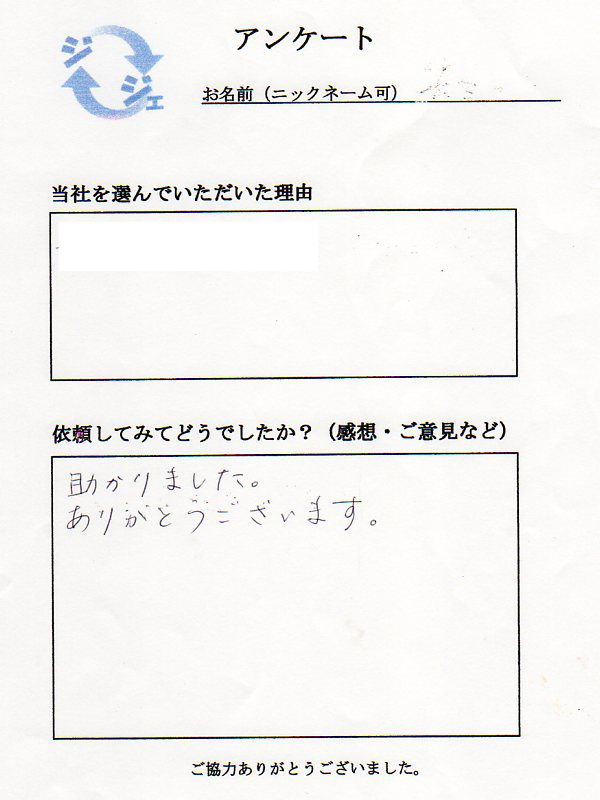 ジジェ
アンケート
お名前（ニックネーム可）
当社を選んでいただいた理由
依頼してみてどうでしたか？（感想・ご意見など）
助かりました。
ありがとうございます。
ご協力ありがとうございました。